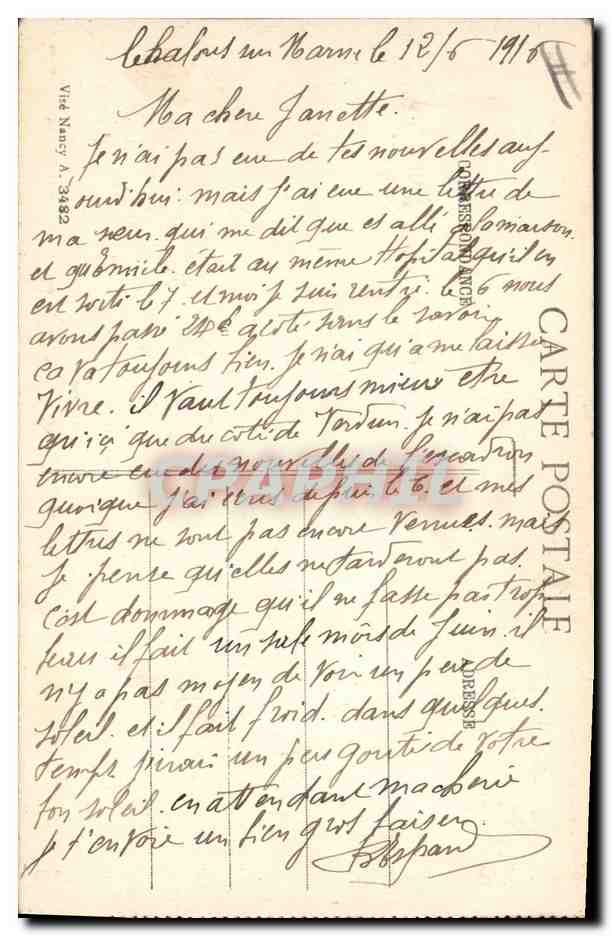 Chalons sur Marne le 12/6 1916
Ma chere Janette.
Je n'ai pas eue de tes nouvelles auj-
ourd'hui. mais j'ai eue une lettre de
ma seur. qui me dit que es allé a la maison
et qu'Emile. était au même Hopital qu'il en
est sortie le 7. et moi je suis rentré. le 6 nous
avons passé 24h a coté sans le savoir
ca va toujours bien. Je n'ai qu'a me laisser
Vivre. il Vaut toujours mieux etre
qu'ici que du coté de Verdun. Je n'ai pas
encore eue des nouvelles de l'escadron
quoique j'ai ecris depuis le 6. et mes
lettres ne sont pas encore venues. mais
je pense qu'elles ne tarderont pas.
c'est dommage qu'il ne fasse pas trop
beau il fait un sale mois de Juin. il
n'y a pas moyen de voir un peu de
soleil. et il fait froid. dans quelques
temps j'irais un peu gouté de votre
bon soleil. en attendant ma cherie
je t'envoie un bien gros baiser
CARTE POSTALE
CORRESPONDANCE
ADRESSE
Visé Nancy A. 3482
CPARAMA